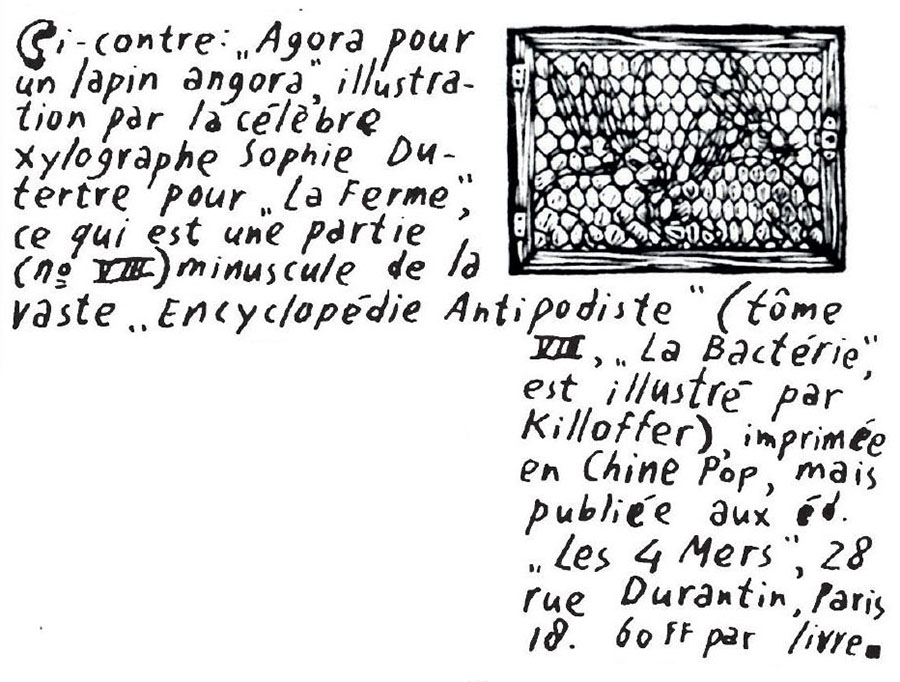 Ci-contre: „Agora pour
un lapin angora", illustra-
tion par la célèbre
xylographe Sophie Du-
tertre pour „La Ferme",
ce qui est une partie
(nº VIII) minuscule de la
vaste „Encyclopédie Antipodiste" (tôme
VII, „La Bactérie",
est illustré par
Killoffer), imprimée
en Chine Pop, mais
publiée aux éd.
„Les 4 Mers", 28
rue Durantin, Paris
18. 60 FF par livre.